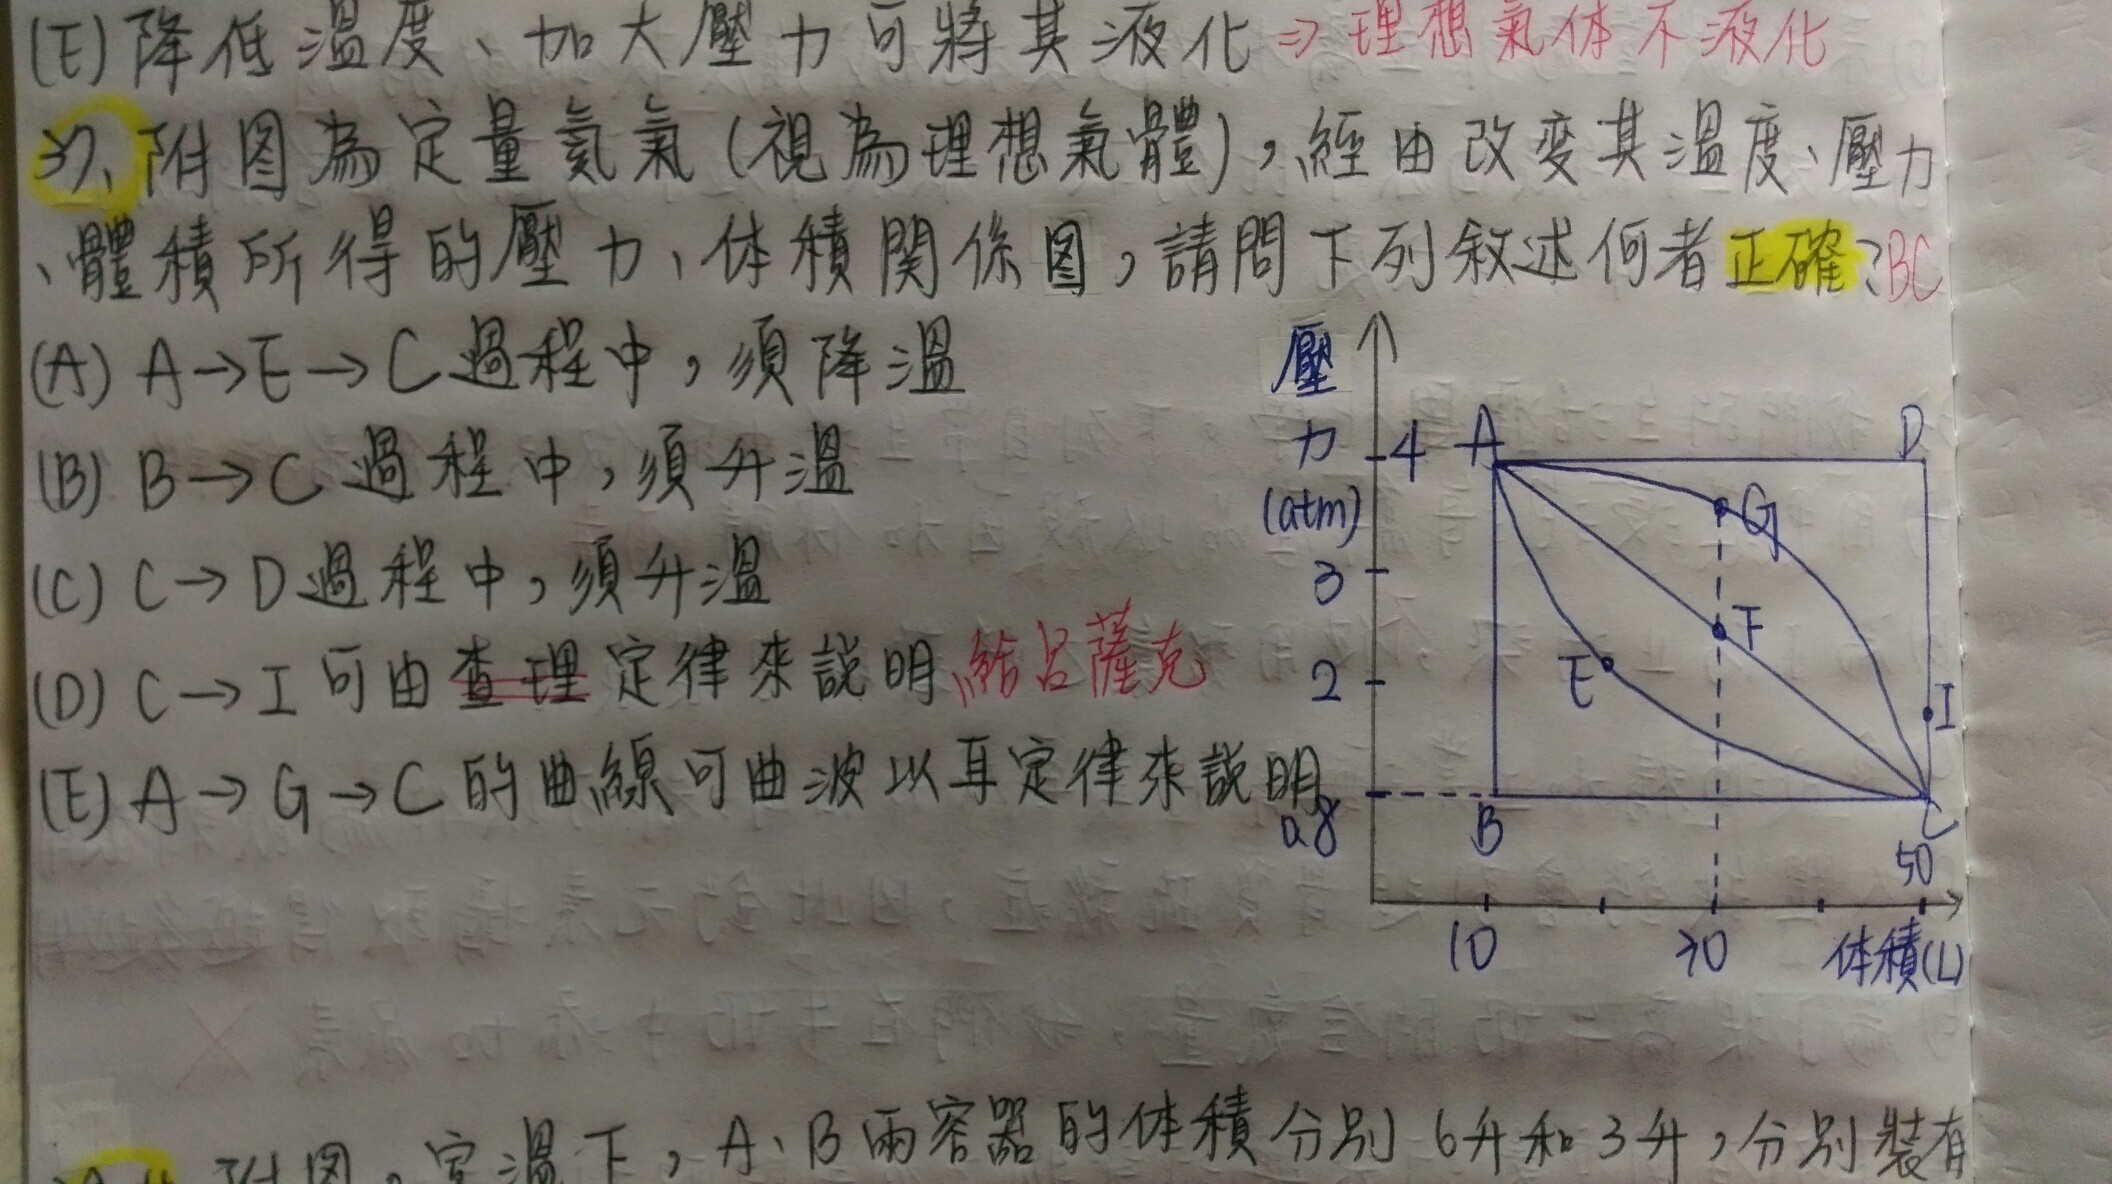 (E) 降低溫度、加大壓力可將其液化⇒理想氣体不液化
37、附图為定量氦氣(視為理想氣體),經由改变其溫度、壓力
、體積所得的壓力、体積関係図,請問下列敘述何者正確?BC
(A) A→E→C過程中,須降溫
(B) B→C過程中,須升溫
(C) C→D過程中,須升溫
(D) C→I可由查理定律來說明 給呂薩克
(E) A→G→C的曲線可由波以耳定律來說明
壓
力
(atm)
4
3
2
0.8
A
D
G
F
E
I
B
C
10
30
50
体積(L)
附図,室溫下,A、B兩容器的体積分別6升和3升,分別裝有